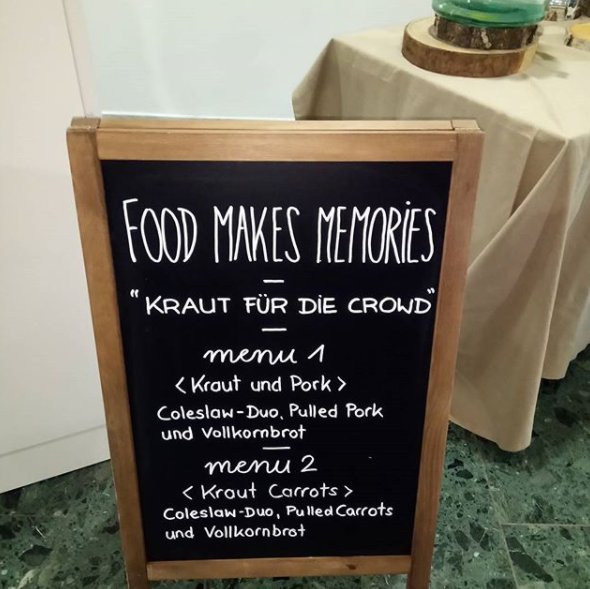 FOOD MAKES MEMORiES
"KRAUT FÜR DiE CROWD"
menu 1
<Kraut und Pork>
Coleslaw-Duo, Pulled Pork
und Vollkornbrot
menu 2
<Kraut Carrots>
Coleslaw-Duo, Pulled Carrots
und Vollkornbrot